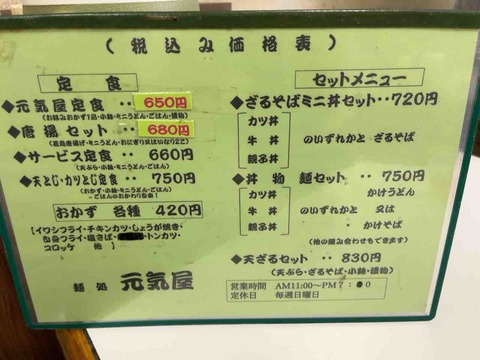 （税込み価格表）
定食
◆元気屋定食‥650円
(お好みおかず1品・小鉢・ミニうどん・ごはん・漬物)
◆唐揚セット‥680円
◆サービス定食‥660円
(天ぷら・小鉢・ミニうどん・ごはん)
◆天とじ・カツとじ定食‥750円
(おかず・小鉢・ミニうどん・ごはん)
・ごはんのおかわり自由!
おかず 各種 420円
[イワシフライ・チキンカツ・しょうが焼き・
白身フライ・塩さば・トンカツ・
コロッケ 他]
麺処 元気屋
セットメニュー
◆ざるそばミニ丼セット‥720円
カツ丼
牛丼 のいずれかと ざるそば
親子丼
◆丼物麺セット‥750円
カツ丼 かけうどん
牛丼 のいずれかと 又は
親子丼 かけそば
(他の組み合わせもできます)
◆天ざるセット‥830円
(天ぷら・ざるそば・小鉢・漬物)
営業時間 AM11:00〜PM7:00
定休日 毎週日曜日